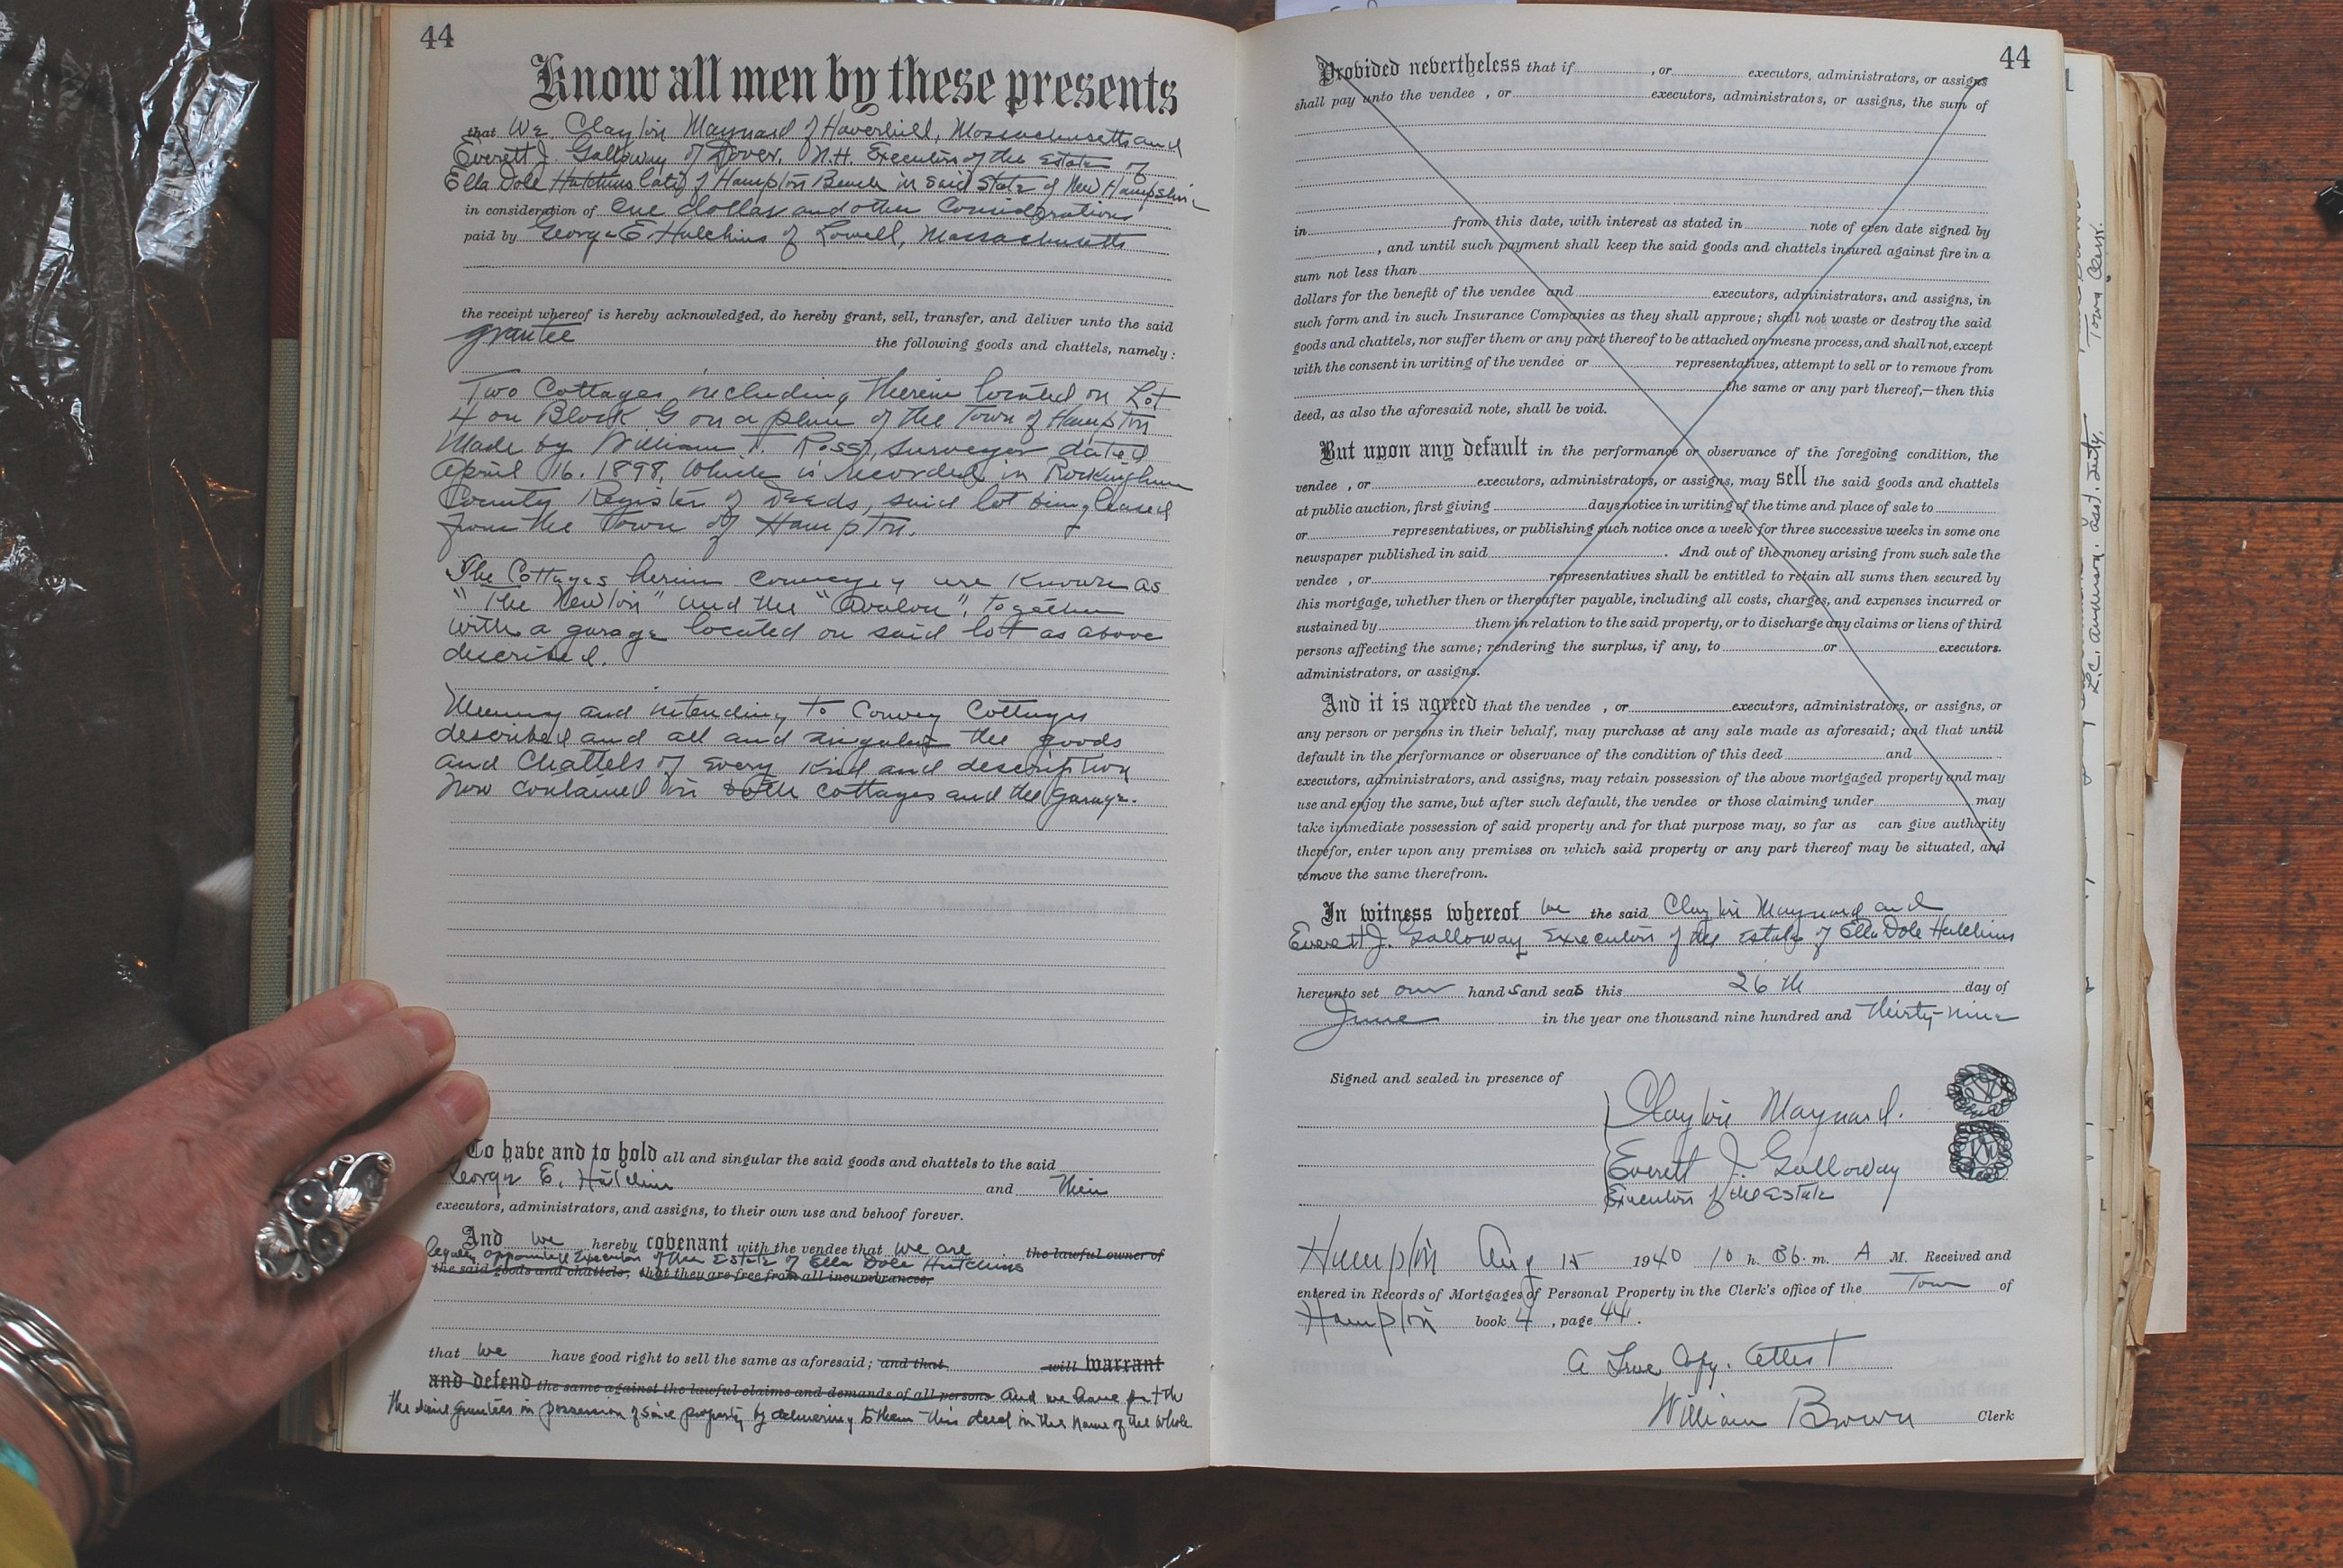 44
Know all men by these presents
that We Clayton Maynard of Haverhill, Massachusetts and
Everett J. Galloway of Dover, N.H. Executors of the Estate of
Ella Dole Hutchins late of Hampton Beach in said State of New Hampshire
in consideration of One dollar and other Considerations
paid by George E. Hutchins of Lowell, Massachusetts
the receipt whereof is hereby acknowledged, do hereby grant, sell, transfer, and deliver unto the said
grantee the following goods and chattels, namely:
Two Cottages including therein located on Lot
4 on Block G on a plan of the Town of Hampton
Made by William T. Ross, Surveyor dated
April 16. 1898, Which is recorded in Rockingham
County Register of Deeds, said lot being leased
from the Town of Hampton.
The Cottages herein conveyed are Known as
"The Newton" and the "Avalon", together
with a garage located on said lot as above
described.
Meaning and intending to Convey Cottages
described and all and singular the goods
and Chattels of every Kind and description
now contained in both cottages and the garage.
To have and to hold all and singular the said goods and chattels to the said
George E. Hutchins and their
executors, administrators, and assigns, to their own use and behoof forever.
And we hereby covenant with the vendee that we are the lawful owner of
legally appointed Executors of the Estate of Ella Dole Hutchins
the said goods and chattels; that they are free from all incumbrances,
that we have good right to sell the same as aforesaid; and that will warrant
and defend the same against the lawful claims and demands of all persons And we have put the
the said grantees in possession of said property by delivering to them this deed in the name of the whole.
44
Provided nevertheless that if , or executors, administrators, or assigns
shall pay unto the vendee , or executors, administrators, or assigns, the sum of
in from this date, with interest as stated in note of even date signed by
, and until such payment shall keep the said goods and chattels insured against fire in a
sum not less than
dollars for the benefit of the vendee and executors, administrators, and assigns, in
such form and in such Insurance Companies as they shall approve; shall not waste or destroy the said
goods and chattels, nor suffer them or any part thereof to be attached on mesne process, and shall not, except
with the consent in writing of the vendee or representatives, attempt to sell or to remove from
the same or any part thereof,—then this
deed, as also the aforesaid note, shall be void.
But upon any default in the performance or observance of the foregoing condition, the
vendee , or executors, administrators, or assigns, may sell the said goods and chattels
at public auction, first giving days notice in writing of the time and place of sale to
or representatives, or publishing such notice once a week for three successive weeks in some one
newspaper published in said . And out of the money arising from such sale the
vendee , or representatives shall be entitled to retain all sums then secured by
this mortgage, whether then or thereafter payable, including all costs, charges, and expenses incurred or
sustained by them in relation to the said property, or to discharge any claims or liens of third
persons affecting the same; rendering the surplus, if any, to or executors.
administrators, or assigns.
And it is agreed that the vendee , or executors, administrators, or assigns, or
any person or persons in their behalf, may purchase at any sale made as aforesaid; and that until
default in the performance or observance of the condition of this deed and
executors, administrators, and assigns, may retain possession of the above mortgaged property and may
use and enjoy the same, but after such default, the vendee or those claiming under may
take immediate possession of said property and for that purpose may, so far as can give authority
therefor, enter upon any premises on which said property or any part thereof may be situated, and
remove the same therefrom.
In witness whereof we the said Clayton Maynard and
Everett J. Galloway Executors of the Estate of Ella Dole Hutchins
hereunto set our hands and seals this 26th day of
June in the year one thousand nine hundred and Thirty-nine
Signed and sealed in presence of
Clayton Maynard.
Everett J. Galloway
Executors of the Estate
Hampton Aug 15 1940 10 h. 36 m. A M. Received and
entered in Records of Mortgages of Personal Property in the Clerk's office of the Town of
Hampton book 4, page 44.
A True Copy. Attest
William Brown Clerk
Town Clerk.
L.C. Anderson. Asst. Secty.